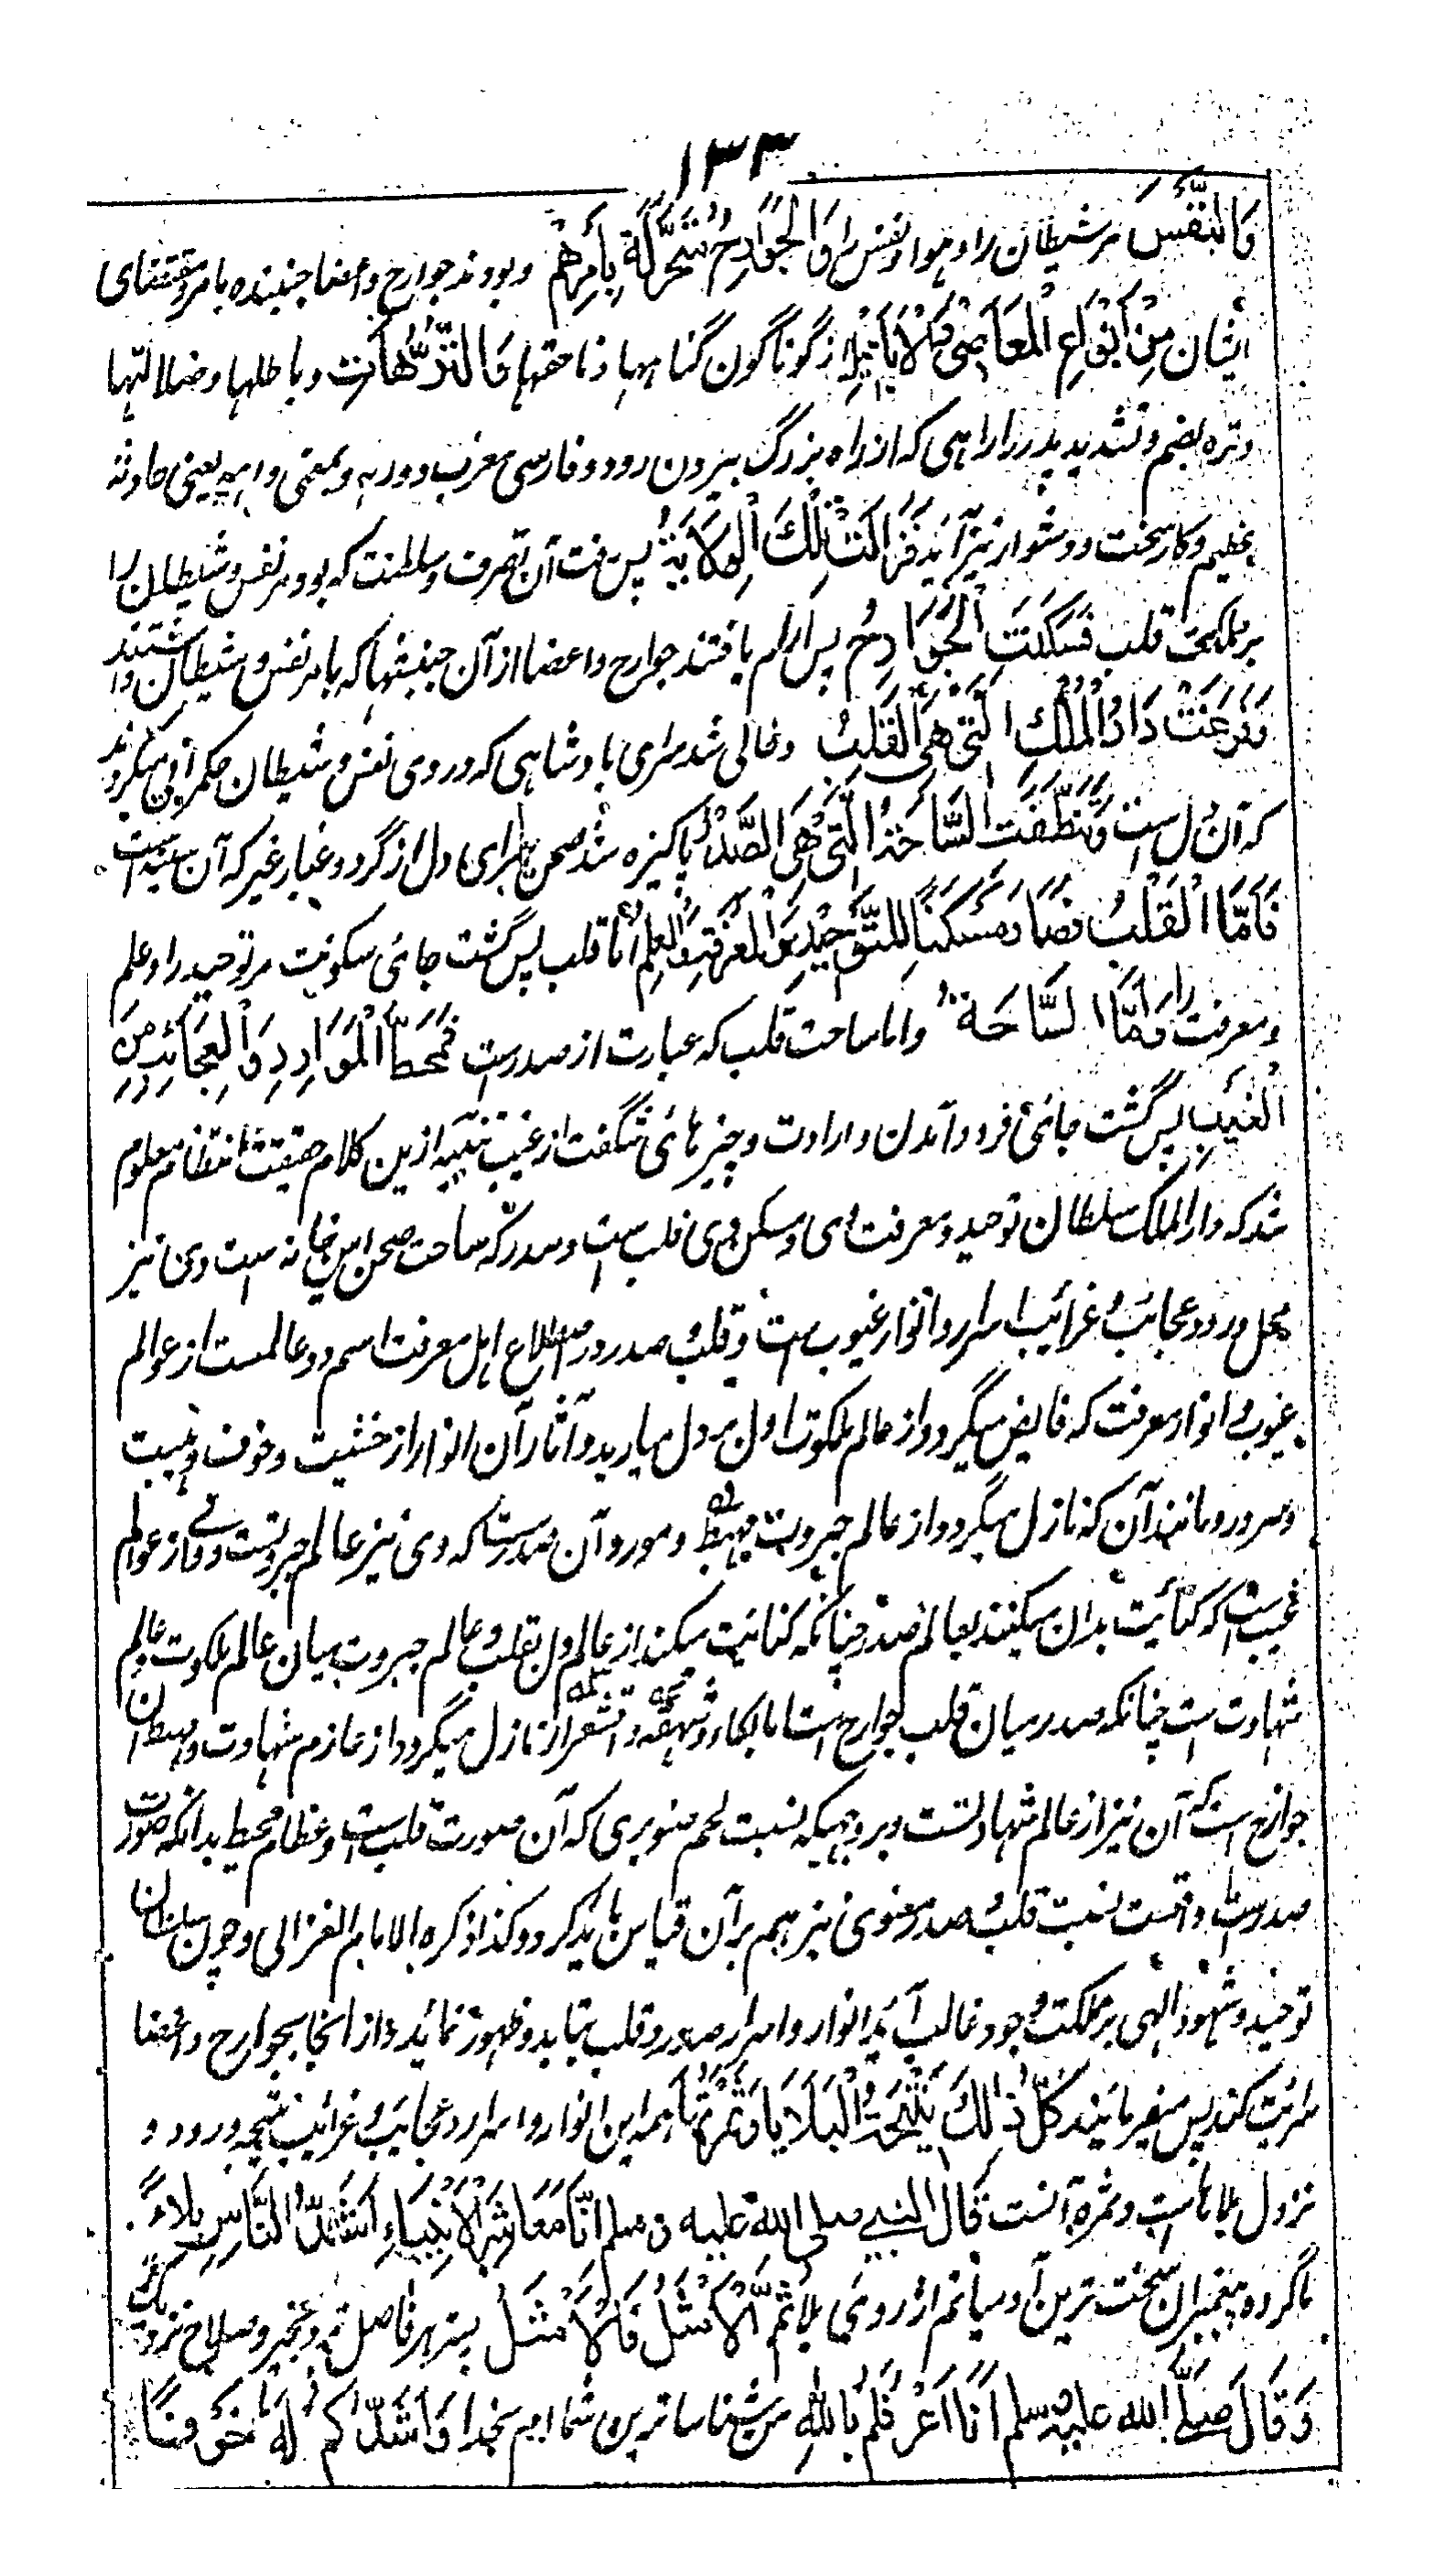 ١٣٣
وَالنَّفْسَ مر شیطان را و هوا و نفس را وَالْجَوَارِحُ مُتَحَرِّكَةٌ بِأَمْرِهِمْ و بودند جوارح و اعضا جنبنده بامر و مقتضای
ایشان مِنْ اَنْوَاعِ الْمَعَاصِیْ وَالْاَبَاطِیْلِ از گوناگون گناهها و ناحقها وَالتُّرَّهَاتِ و باطلها و ضلالتها
و تره بضم و تشدید پدر را راهی که از راه بزرگ بیرون رود و فارسی معرب دوره و بمعنی داهیه یعنی حادثه
عظیم و کار سخت و دشوار نیز آید فَزَالَتْ تِلْكَ الْوِلَایَةُ پس رفت آن تصرف و سلطنت که بود مر نفس و شیطان را
بر مملکت قلب فَسَكَنَتِ الْجَوَارِحُ پس آرام یافتند جوارح و اعضا از آن جنبشها که بامر نفس و شیطان داشتند
وَفَرَغَتْ دَارُ الْمُلْكِ الَّتِیْ هِیَ الْقَلْبُ و خالی شد سرای بادشاهی که در وی نفس و شیطان حکمرانی میکردند
که آن دل است وَتَنَظَّفَتِ السَّاحَةُ الَّتِیْ هِیَ الصَّدْرُ پاکیزه شد صحن سرای دل از گرد و غبار غیر که آن سینه است
فَاَمَّا الْقَلْبُ فَصَارَ مَسْكَنًا لِلتَّوْحِیْدِ وَالْمَعْرِفَةِ وَالْعِلْمِ اما قلب پس گشت جائی سکونت مر توحید را و علم
و معرفت را وَاَمَّا السَّاحَةُ و اما ساحت قلب که عبارت از صدرست فَمَحَطُّ الْمَوَارِدِ وَالْعَجَائِبِ مِنَ
الْغَیْبِ پس گشت جائی فرود آمدن واردات و چیزهائی شگفت از غیب تنبیه ازین کلام حقیقت انتظام معلوم
شد که دارالملک سلطان توحید و معرفت وی و مسکن وی قلب ست و صدر که ساحت صحن این خانه ست وی نیز
محل ورود عجائب و غرائب اسرار و انوار غیوب ست و قلب و صدر در اصطلاح اهل معرفت اسم دو عالمست از عوالم
غیوب و انوار معرفت که فایض میگردد از عالم ملکوت اول بر دل میبارد و آثار آن انوار از خشیت و خوف و هیبت
و سرور و مانند آن که نازل میگردد از عالم جبروت مهبط و مورد آن صدرست که وی نیز عالم جبروتست وی از عوالم
غیب ست که کنایت بدان میکنند بعالم صدر چنانکه کنایت میکند از عالم دل بقلب و عالم جبروت میان عالم ملکوت و عالم
شهادت ست چنانکه صدر میان قلب و جوارح است اما بکاء و شهقه و قشعرار نازل میگردد از عالم شهادت و مهبط آن
جوارح است که آن نیز از عالم شهادتست و بر وجهیکه نسبت لحم صنوبری که آن صورت قلب ست و عظام محیط بدانکه صورت
صدرست واقعست نسبت قلب و صدر معنوی نیز هم بر آن قیاس باید کرد و کذا ذکره الامام الغزالی و چون سلطان
توحید و شهود الهی بر مملکت وجود غالب آید انوار و اسرار صدر و قلب بتابد و ظهور نماید و از انجا بجوارح و اعضا
سرایت کند پس میفرمایند كُلُّ ذٰلِكَ نَتِیْجَةُ الْبَلَایَا وَثَمَرَتُهَا همه این انوار و اسرار و عجایب و غرائب نتیجه ورود و
نزول بلاها ست و ثمره آنست قَالَ النبی صلی الله علیه و سلم اِنَّا مَعَاشِرَ الْاَنْبِیَاءِ اَشَدُّ النَّاسِ بَلَاءً
ما گروه پیغمبران سخت ترین آدمیانیم از روی بلا ثُمَّ الْاَمْثَلُ فَالْاَمْثَلُ پستر هر فاضل تر و بخیر و صلاح نزدیک تر
وَقَالَ صَلَّی الله علیه و سلم اَنَا اَعْرَفُكُمْ بِاللّٰهِ من شناسا ترین شما ام بخدا وَاَشَدُّكُمْ لَهُ خَوْفًا